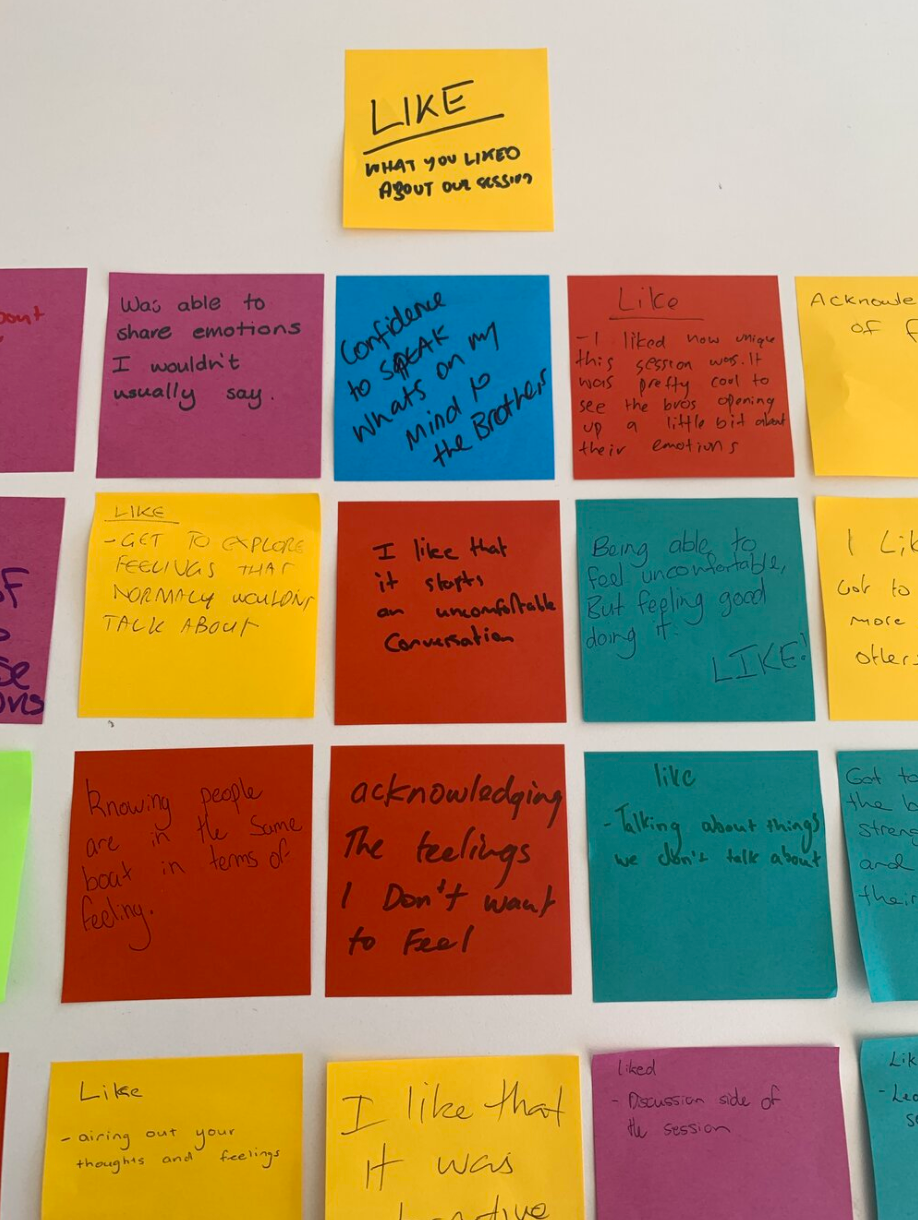 LIKE
WHAT YOU LIKED
ABOUT OUR SESSION
Was able to
share emotions
I wouldn't
usually say.
Confidence
to SPEAK
Whats on my
Mind to
the Brothers
Like
- I liked how unique
this session was. It
was pretty cool to
see the bros opening
up a little bit about
their emotions
of
LIKE
- GET TO EXPLORE
FEELINGS THAT
NORMALY WOULDNT
TALK ABOUT
I like that
it starts
an uncomfortable
Conversation
Being able to
feel uncomfortable,
But feeling good
doing it.
LIKE!
I
Got to
more
others
Knowing people
are in the same
boat in terms of
feeling.
acknowledging
The feelings
I Don't want
to Feel
like
- Talking about things
we don't talk about
Got to
the
and
their
Like
- airing out your
thoughts and feelings
I like that
it was
liked
- Discussion side of
the session